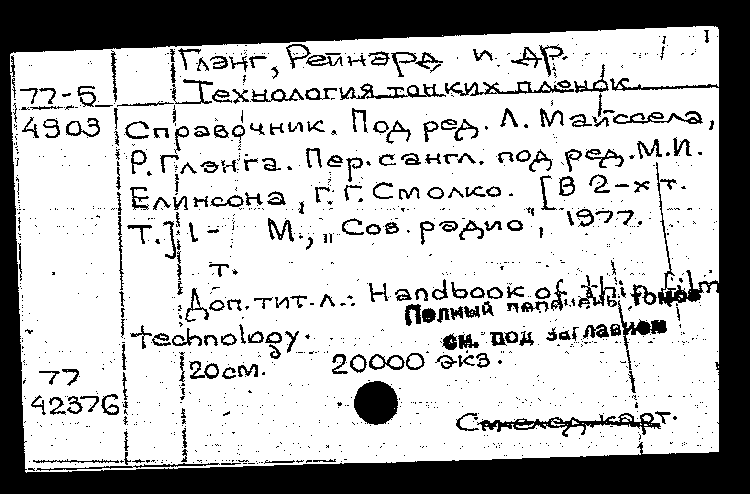 Глэнг, Рейнард и др.
77-5 Технология тонких пленок.
4903 Справочник. Под ред. Л. Майссела,
Р. Глэнга. Пер. с англ. под ред. М.И.
Елинсона, Г.Г. Смолко. [В 2-х т.
т.] 1- М., „Сов. радио", 1977.
т.
Доп. тит. л.: Handbook of thin film
Полный перечень томов
technology.
см. под заглавием
77 20см. 20000 экз.
42376
См. след. карт.